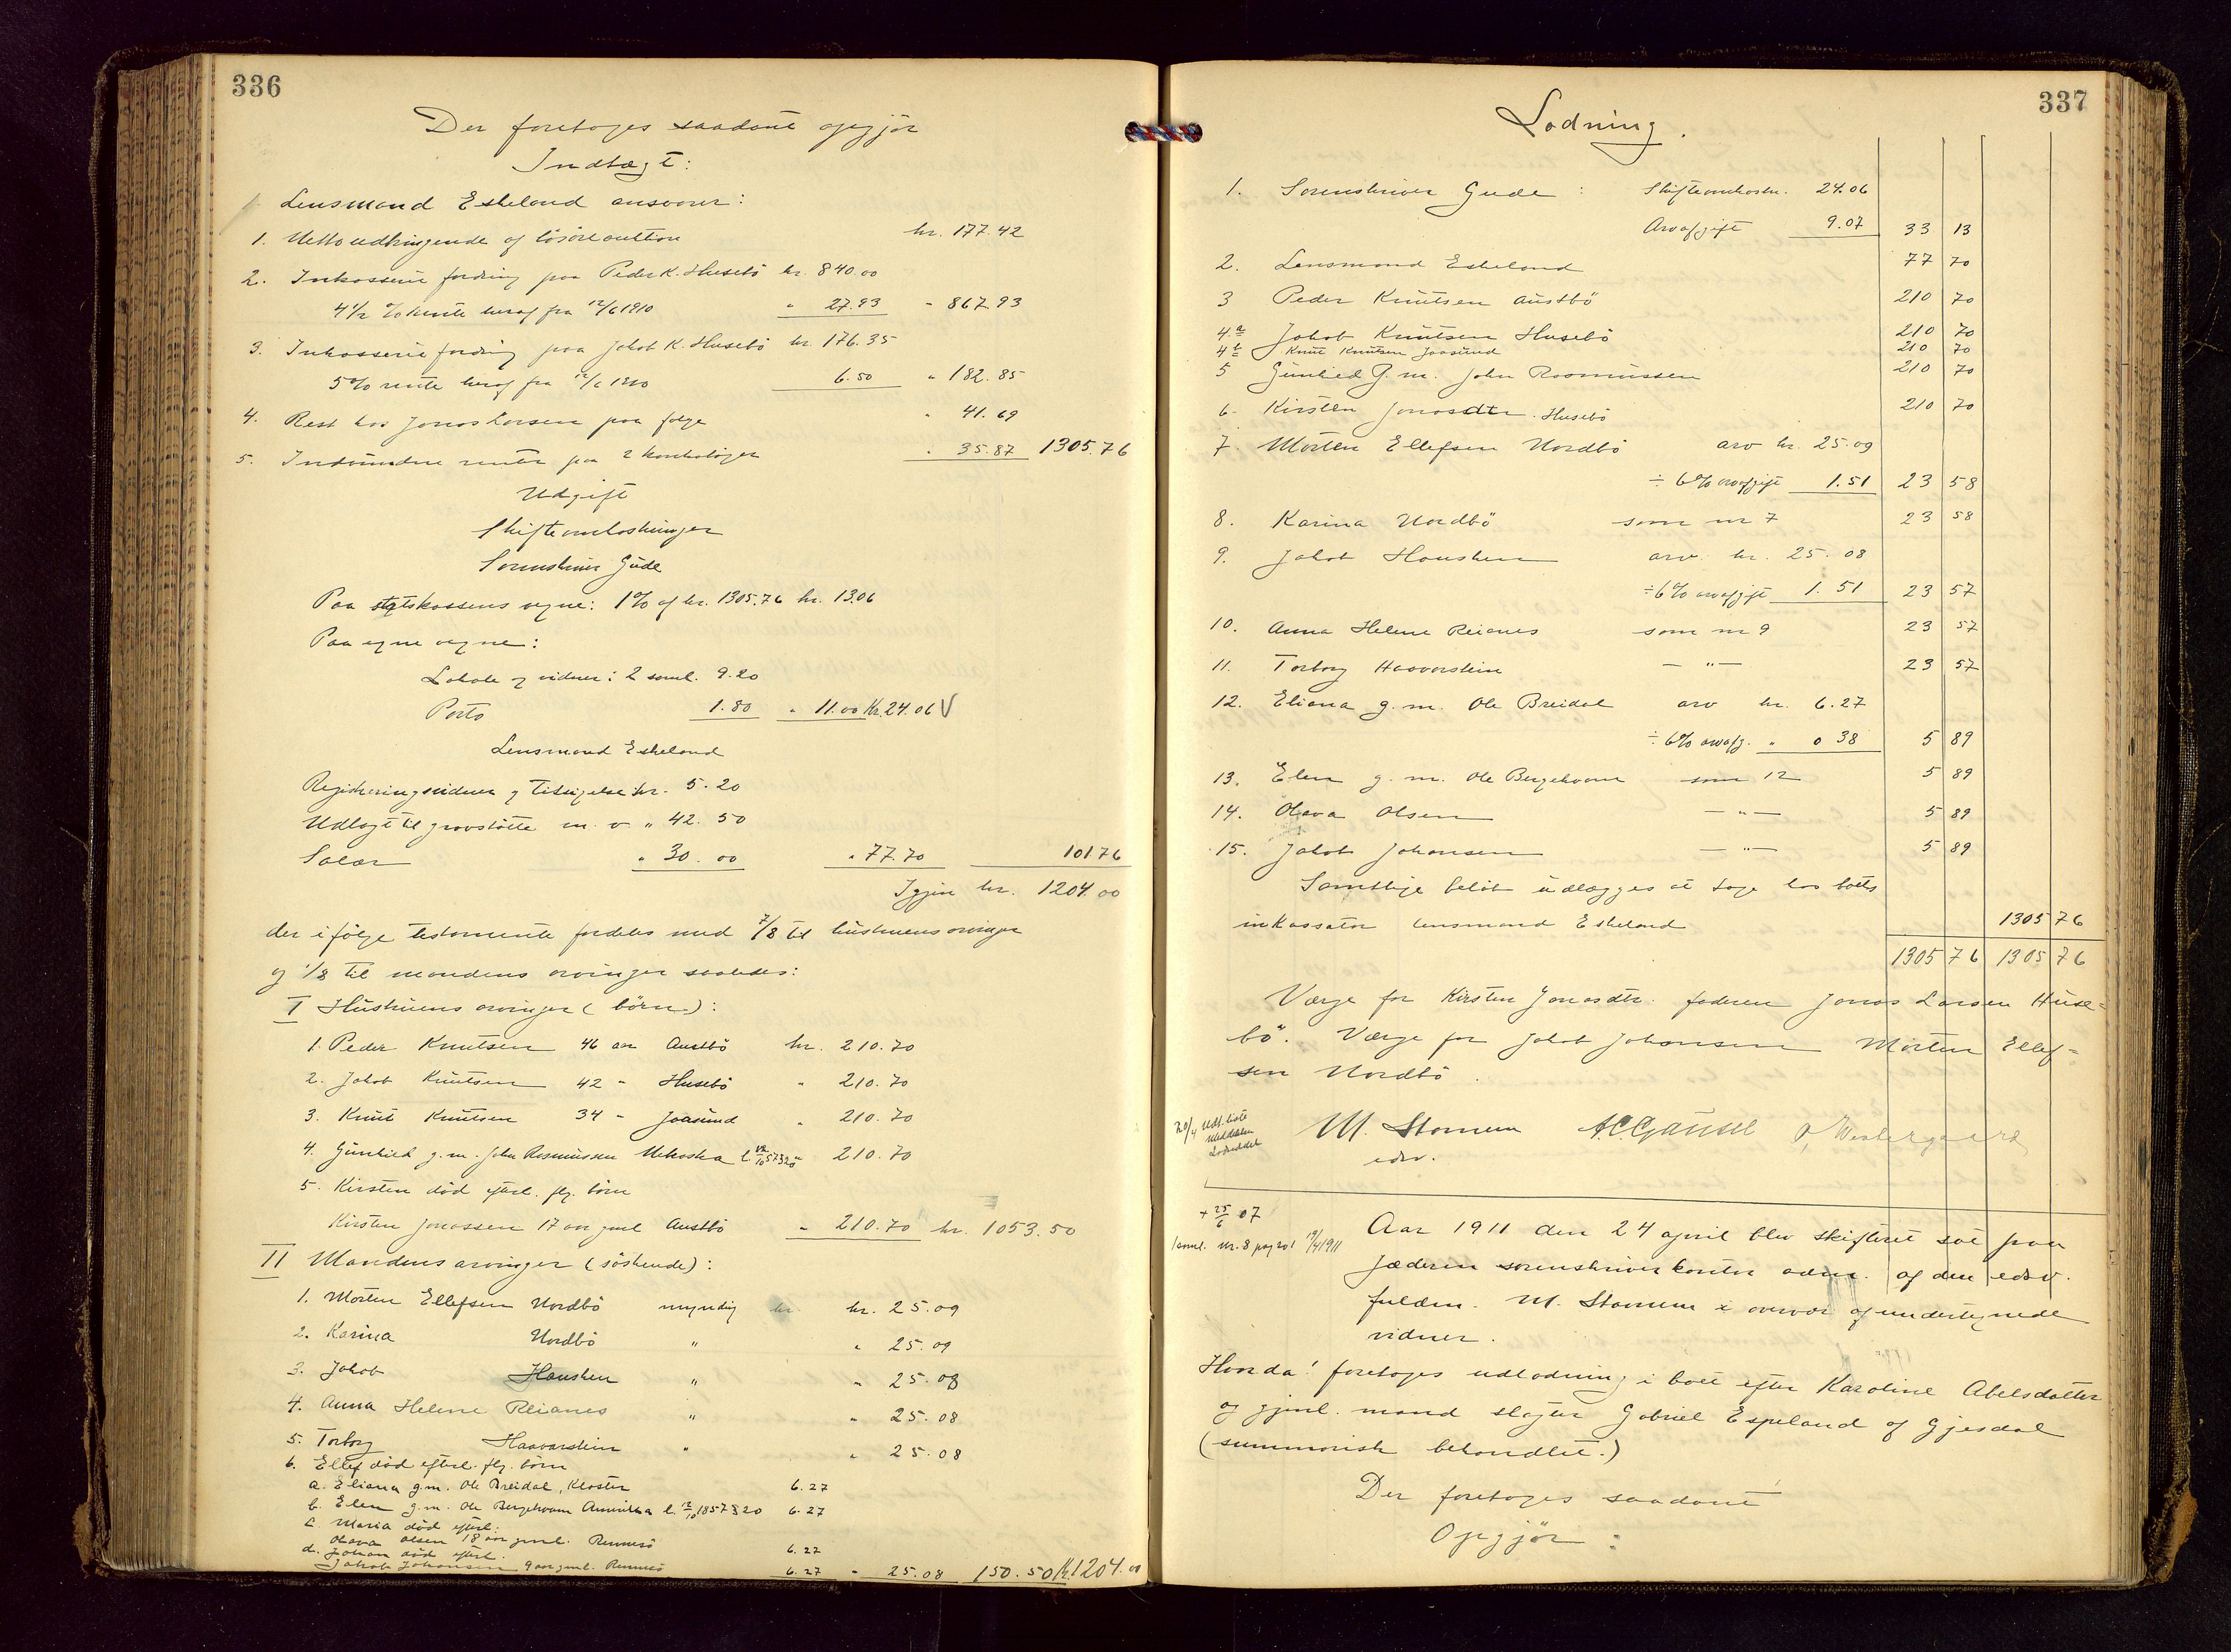 336
Der foretages saadant opgjör
Indtægt:
Lensmand Eskeland ansvarer:
1. Nettoudbringende af lösöreauktion kr. 177.42
2. Inkasserie fordring paa Peder K. Husebö kr. 840.00
4 1/2 % rente herav fra 12/6 1910 " 27.93 " 867.93
3. Inkasserie fordring paa Jakob K. Husebö kr. 176.35
5% rente herof fra 12/6 1910 6.50 " 182.85
4. Rest hos Jonas Larsen paa folge " 41.69
5. Indvundne renter paa 2 bankböger " 35.87 1305.76
Udgift
Skifteomkostninger
Sorenskriver Gude
Paa statskassens vegne: 1% af kr. 1305.76 kr. 13.06
Paa egne vegne:
Lokale og vidner: 2 saml. 9.20
Porto 1.80 " 11.00 Kr. 24.06 V
Lensmand Eskeland
Registreringsvidner og tilsigelse kr. 5.20
Udlagt til gravstötte m. v. " 42.50
Salær " 30.00 " 77.70 101.76
Igjen kr. 1204.00
der i fölge testamente fordeles med 7/8 til hustruens arvinger
og 1/8 til mandens arvinger saaledes:
I Hustruens arvinger (börn):
1. Peder Knutsen 46 aar Austbö kr. 210.70
2. Jakob Knutsen 42 " Husebö " 210.70
3. Knut Knutsen 34 " Jaasund " 210.70
4. Gunhild g. m. John Rasmussen l. 12/10 57 § 20 210.70
5. Kirsten död efterl. flg. börn
Kirsten Jonassen 17 aar gml Austbö " 210.70 kr. 1053.50
II Mandens arvinger (söskende):
1. Morten Ellefsen Nordbö myndig kr. 25.09
2. Karina Nordbö " " 25.09
3. Jakob Hausken " " 25.08
4. Anna Helene Reianes " " 25.08
5. Torborg Haavarstein " " 25.08
6. Ellef död efterl. flg. börn
a. Eliana g.m. Ole Breidal, Kloster 6.27
b. Elen g.m. Ole Bergehavn Amerika l. 12/10 1857 § 20 6.27
c. Maria död efterl.
Olava Olsen 18 aar gml. Rennesö 6.27
d. Johan död efterl.
Jakob Johansen 9 aar gml. Rennesö 6.27 " 25.08 150.50 Kr. 1204.00
337
Lodning.
1. Sorenskriver Gude: Skifteomkostn. 24.06
Arvafgift 9.07 33 13
2. Lensmand Eskeland 77 70
3 Peder Knutsen Austbö 210 70
4.a Jakob Knutsen Husebö 210 70
4 b Knut Knutsen Jaasund 210 70
5 Gunhild g. m. John Rasmussen 210 70
6. Kirsten Jonasdtr. Husebö 210 70
7. Morten Ellefsen Nordbö arv kr. 25.09
÷ 6% arvafgift 1.51 23 58
8. Karina Nordbö som nr 7 23 58
9. Jakob Hausken arv kr. 25.08
÷ 6% arvafgift 1.51 23 57
10. Anna Helene Reianes som nr 9 23 57
11. Torborg Haavarstein — " — 23 57
12. Eliana g. m. Ole Breidal arv kr. 6.27
÷ 6% arvafg. " 0 38 5 89
13. Elen g. m. Ole Bergehavn som 12 5 89
14. Olava Olsen — " — 5 89
15. Jakob Johansen — " — 5 89
Samtlige belöb udlægges at tage hos boets
inkassator lensmand Eskeland 1305 76
1305 76 1305 76
Værge for Kirsten Jonasdtr. faderen Jonas Larsen Huse-
bö. Værge for Jakob Johansen Morten Ellef-
sen Nordbö.
20/4 Udl. liste
Meddelelse
Lodseddel
M. Stamum A.C. Gausel P. Westergaard
edsv.
+ 25/6 07
1 saml. nr. 8 pag 201 19/4 1911
Aar 1911 den 24 april blev skifteret sat paa
Jæderen sorenskriverkontor adm. af den edsv.
fuldm. M. Stamum i overvær af undertegnede
vidner.
Hvorda! foretages udlodning i boet efter Karoline Abelsdatter
og gjenl. mand slagter Gabriel Espeland af Gjesdal
(summarisk behandlet.)
Der foretages saadant
Opgjör: